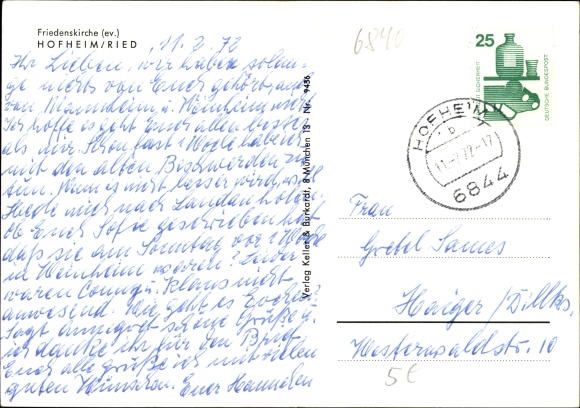 Friedenskirche (ev.)
HOFHEIM/RIED
11. 2. 72
Ihr Lieben, wir haben solan-
ge nichts von Euch gehört, auch
von Mannheim u. Weinheim nicht.
Ich hoffe es geht Euch allen besser
als mir. Schon fast 1 Woche habe ich
mit den alten Beschwerden zu
tun. Wenn es nicht besser wird,
Hede mich nach Landau holen.
ob Euch Sofie geschrieben hat
daß sie am Sonntag vor 1 Woche
in Weinheim waren? Leider
waren Conny u. Klaus nicht
anwesend. Wie geht es Euren?
Sagt Annegret schöne Grüße u.
ich danke ihr für den Brief.
Euch alle grüße ich mit vielen
guten Wünschen. Euer Hannchen
Verlag Keller & Burkardt, 8 München 13 - Nr. 9436
6840
25
DEUTSCHE BUNDESPOST
HOFHEIM
b
11.-2.72-17
6844
Frau
Gretel Sames
Haiger/Dillkr.
Westerwaldstr. 10
5€